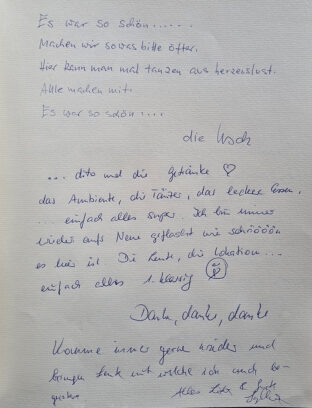 Es war so schön......
Machen wir sowas bitte öfter.
Hier kann man mal tanzen aus herzenslust.
Alle machen mit.
Es war so schön....
die Usch
... dito und die Getränke ♡
das Ambiente, die Tänzer, das leckere Essen,
... einfach alles super. Ich bin immer
wieder aufs Neue geflasht wie schööööön
es hier ist. Die Leute, die Lokation...
einfach alles 1. klassig
Danke, danke, danke
Komme immer gerne wieder und
bringe Leute mit welche ich auch be-
Alles Liebe &